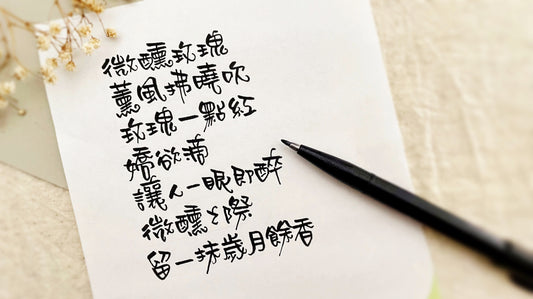 微醺玫瑰
薰風拂曉吹
玫瑰一點紅
嬌欲滴
讓人一眼即醉
微醺之際
留一抹歲月餘香